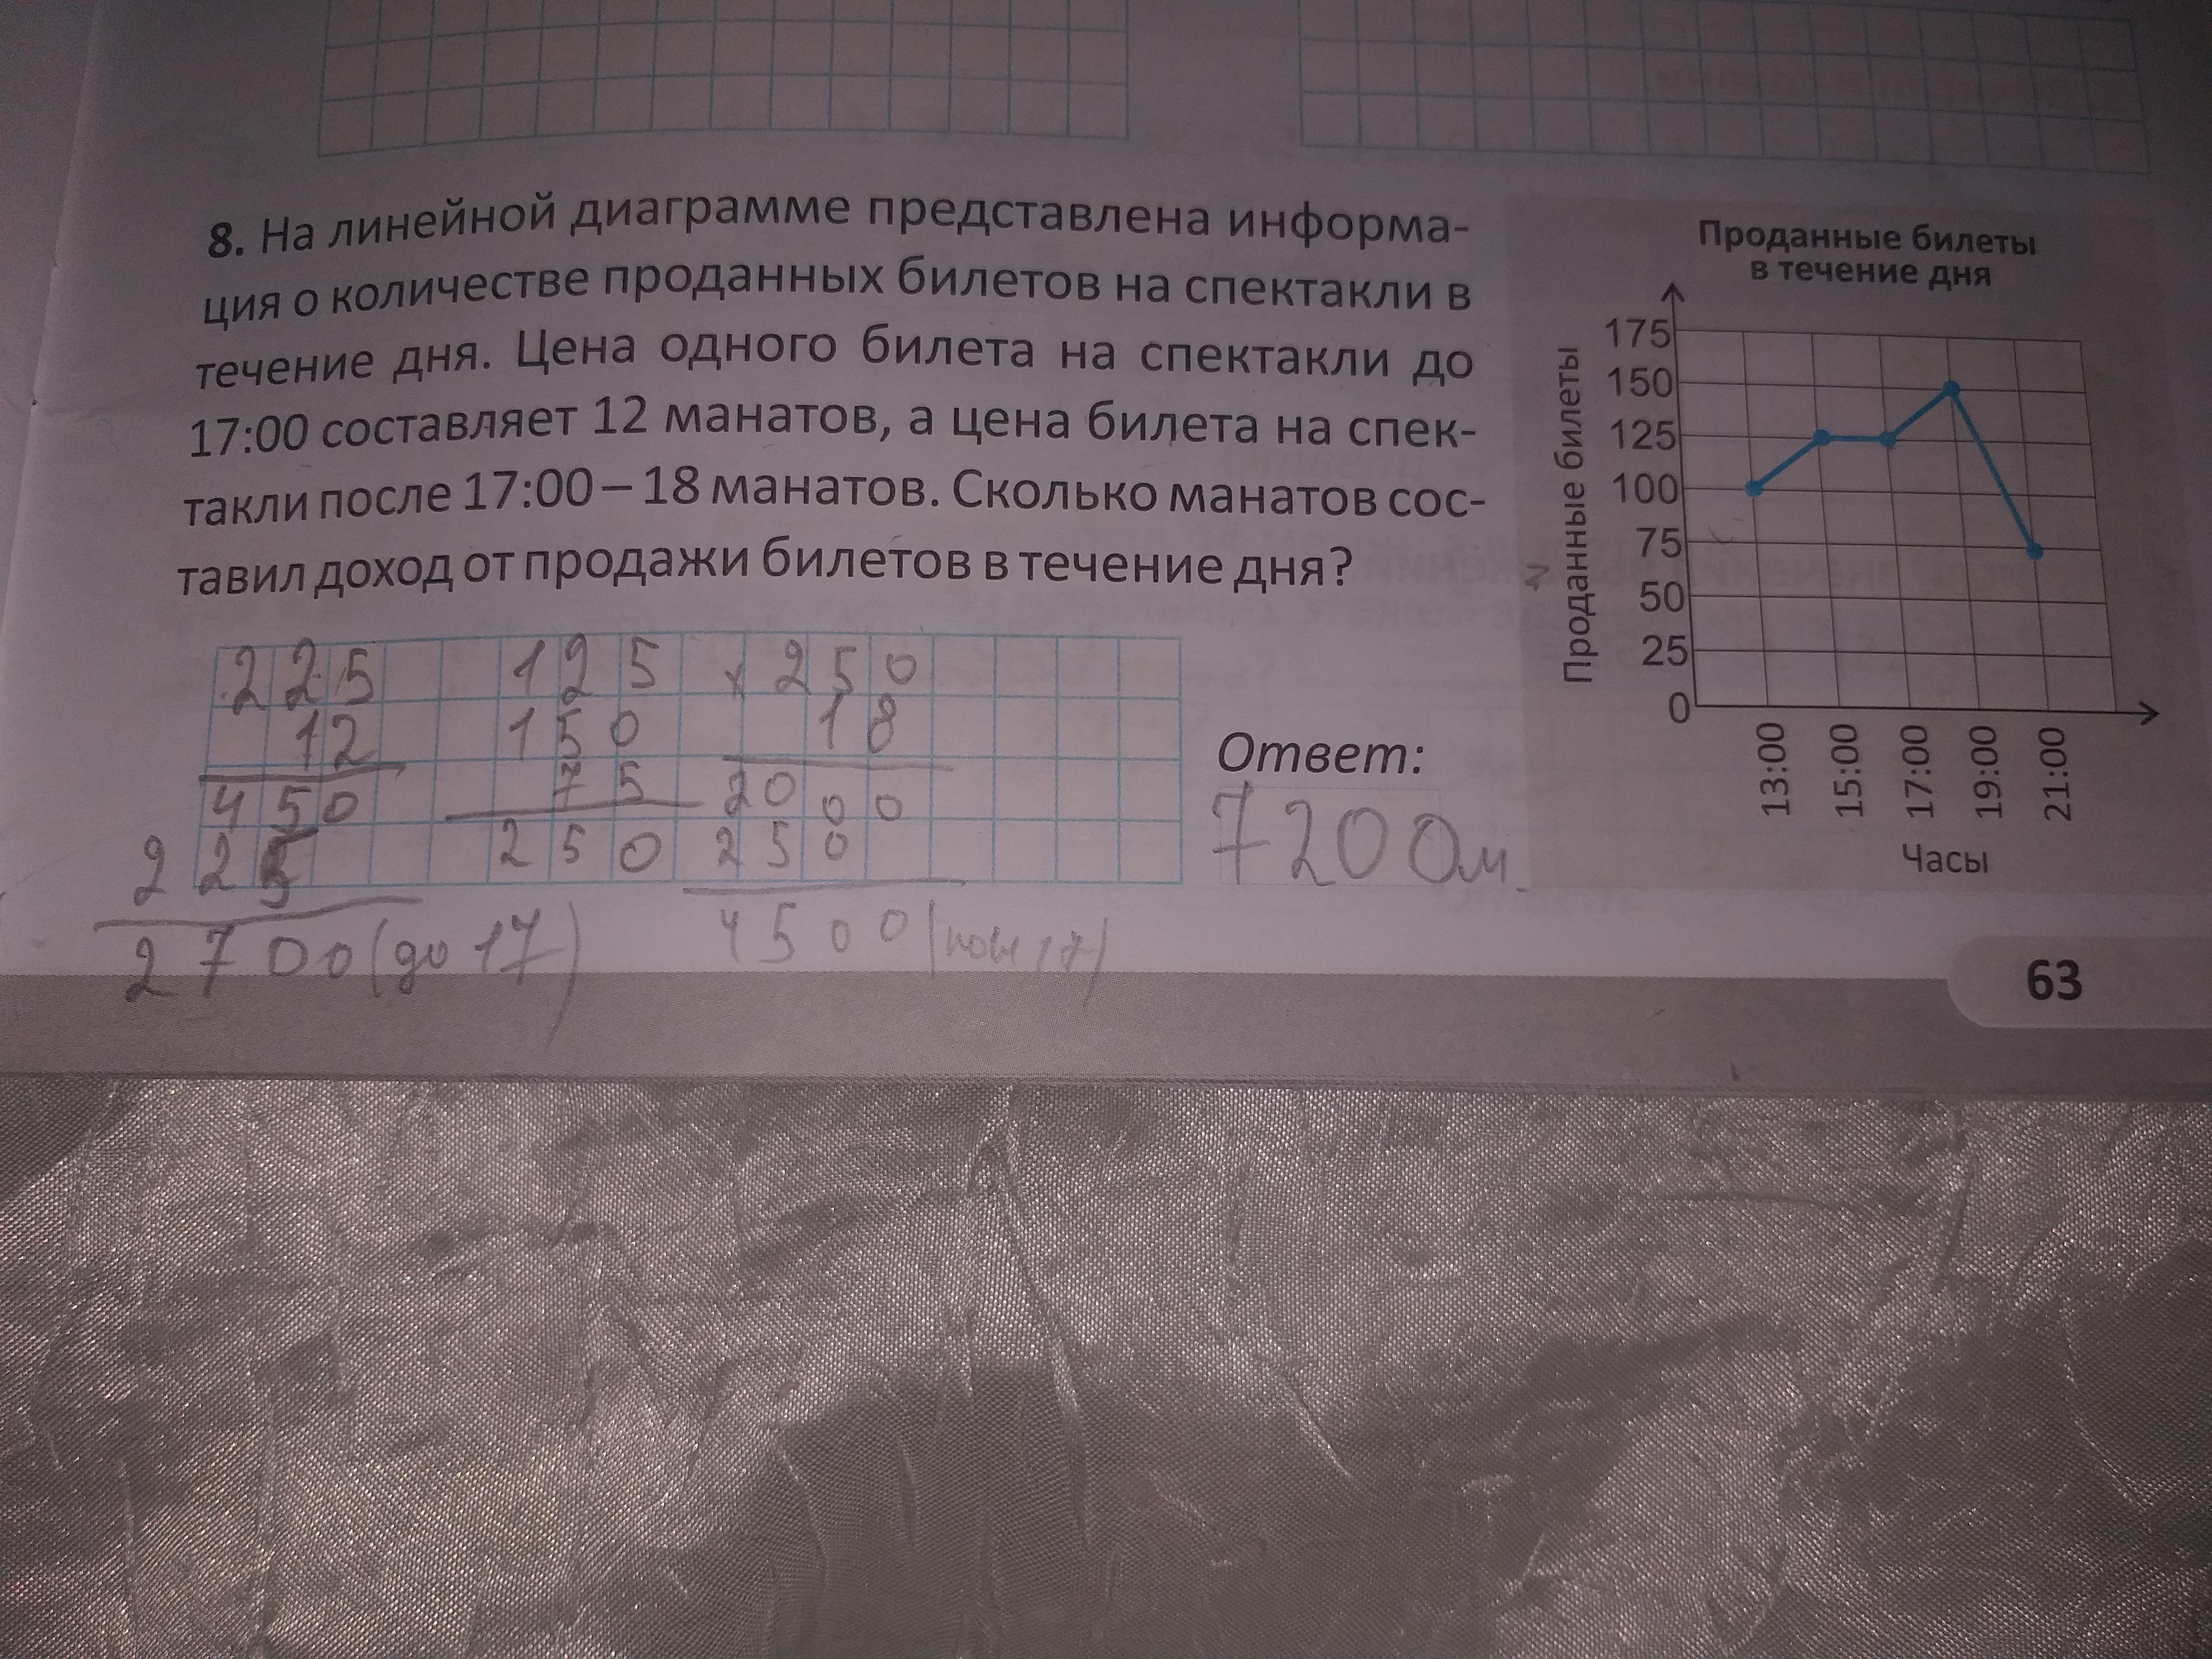 8. На линейной диаграмме представлена информа-
ция о количестве проданных билетов на спектакли в
течение дня. Цена одного билета на спектакли до
17:00 составляет 12 манатов, а цена билета на спек-
такли после 17:00 – 18 манатов. Сколько манатов сос-
тавил доход от продажи билетов в течение дня?
225
12
450
225
2700 (до 17)
125
150
75
250
x 250
18
2000
250
4500
Ответ:
7200м.
Проданные билеты
в течение дня
Проданные билеты
175
150
125
100
75
50
25
0
13:00
15:00
17:00
19:00
21:00
Часы
63